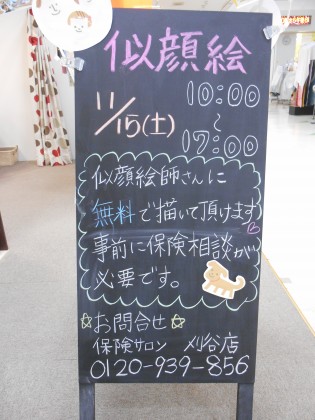 似顔絵
11/15(土)
10:00
~
17:00
似顔絵師さんに
無料で描いて頂けます
事前に保険相談が
必要です。
☆お問合せ☆
保険サロン 刈谷店
0120-939-856